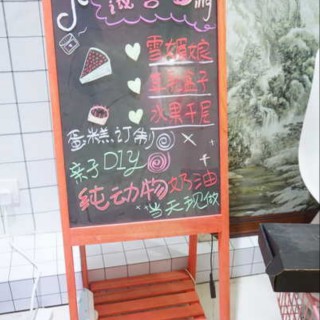 雪媚娘
草莓盒子
水果千层
蛋糕订制
亲子DIY
纯动物奶油
当天现做